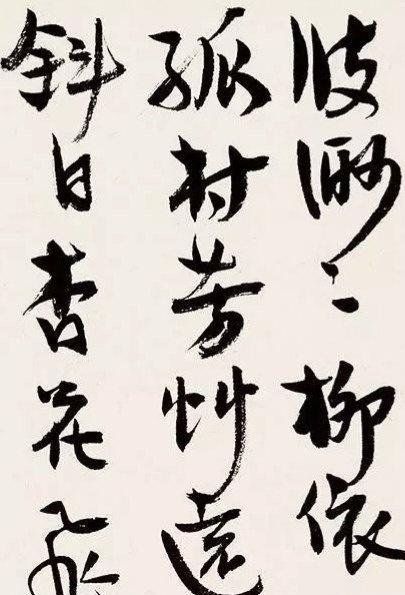 波渺々柳依
孤村芳艸遠
斜日杏花飛